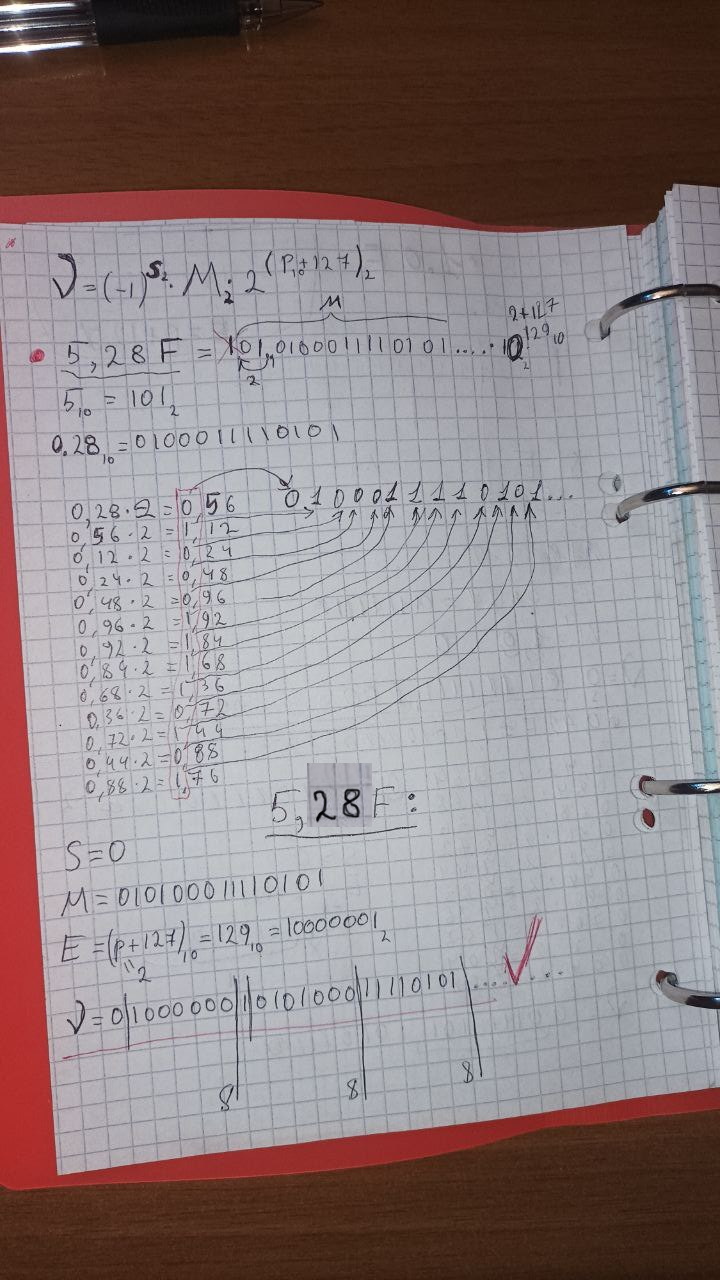 V = (-1)^S₂ · M₂ · 2^(P₁₀+127)₂
M
2+127
129₁₀
5,28F = 101,0100011110101..... 10₂
2
5₁₀ = 101₂
0.28₁₀ = 0100011110101
0100011110101...
0,28·2 = 0,56
0,56·2 = 1,12
0,12·2 = 0,24
0,24·2 = 0,48
0,48·2 = 0,96
0,96·2 = 1,92
0,92·2 = 1,84
0,84·2 = 1,68
0,68·2 = 1,36
0,36·2 = 0,72
0,72·2 = 1,44
0,44·2 = 0,88
0,88·2 = 1,76
5,28F:
S=0
M = 010100011110101
E = (p+127)₁₀ = 129₁₀ = 10000001₂
"2
V = 0|1000000|1|0101000|11110101|........
8 8 8